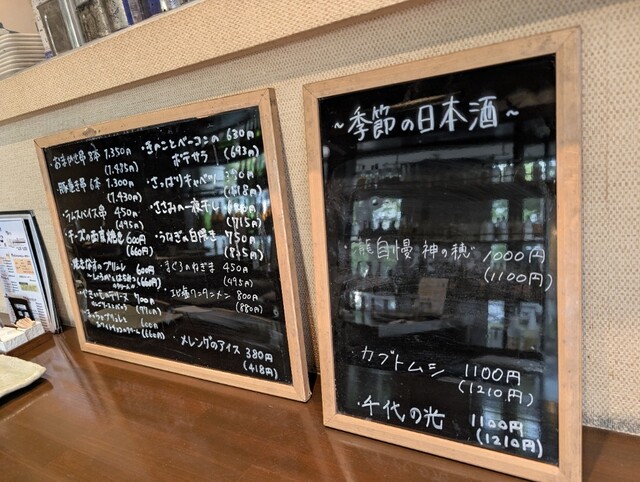 おまかせ串 8本 1,350円
(1,485円)
豚巻き串 6本 1,300円
(1,430円)
ラムスパイス串 450円
(495円)
チーズの西京焼き 600円
(660円)
600円
(660円)
700円
(770円)
600円
(660円)
・きのことベーコンの 630円
ポテサラ (693円)
・さっぱりキャベツ
・ささみの一夜干し
(715円)
・うなぎの白焼き 750円
(825円)
・まぐろのねぎま 450円
(495円)
ワンタンメン 800円
(880円)
・メレンゲのアイス 380円
(418円)
~季節の日本酒~
・龍自慢 神の穂 1000円
(1100円)
・カブトムシ 1100円
(1210円)
・千代の光 1100円
(1210円)